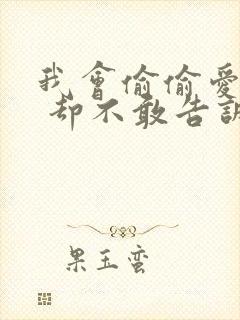 我會偷偷愛
却不敢告訴
果玉蛮